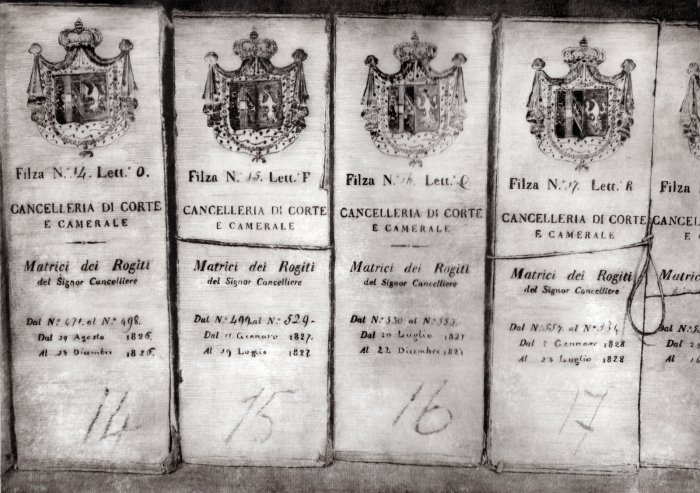 Filza N.º 14. Lett.ª O.
CANCELLERIA DI CORTE
E CAMERALE
Matrici dei Rogiti
del Signor Cancelliere
Dal N.º 471. al N.º 498.
Dal 29 Agosto 1826.
Al 23 Dicembre 1826.
14
Filza N.º 15. Lett.ª P
CANCELLERIA DI CORTE
E CAMERALE
Matrici dei Rogiti
del Signor Cancelliere
Dal N.º 499. al N.º 529.
Dal 11 Gennaro 1827.
Al 19 Luglio 1827
15
Filza N.º 16. Lett.ª Q
CANCELLERIA DI CORTE
E CAMERALE
Matrici dei Rogiti
del Signor Cancelliere
Dal N.º 530. al N.º 553.
Dal 20 Luglio 1827
Al 22 Dicembre 1827
16
Filza N.º 17. Lett.ª R
CANCELLERIA DI CORTE
E CAMERALE
Matrici dei Rogiti
del Signor Cancelliere
Dal N.º al N.º
Dal 2 Gennaro 1828
Al 23 Luglio 1828
17
Filza
CANCELLERIA
E
Matrici
del
Dal N.º
Dal
Al